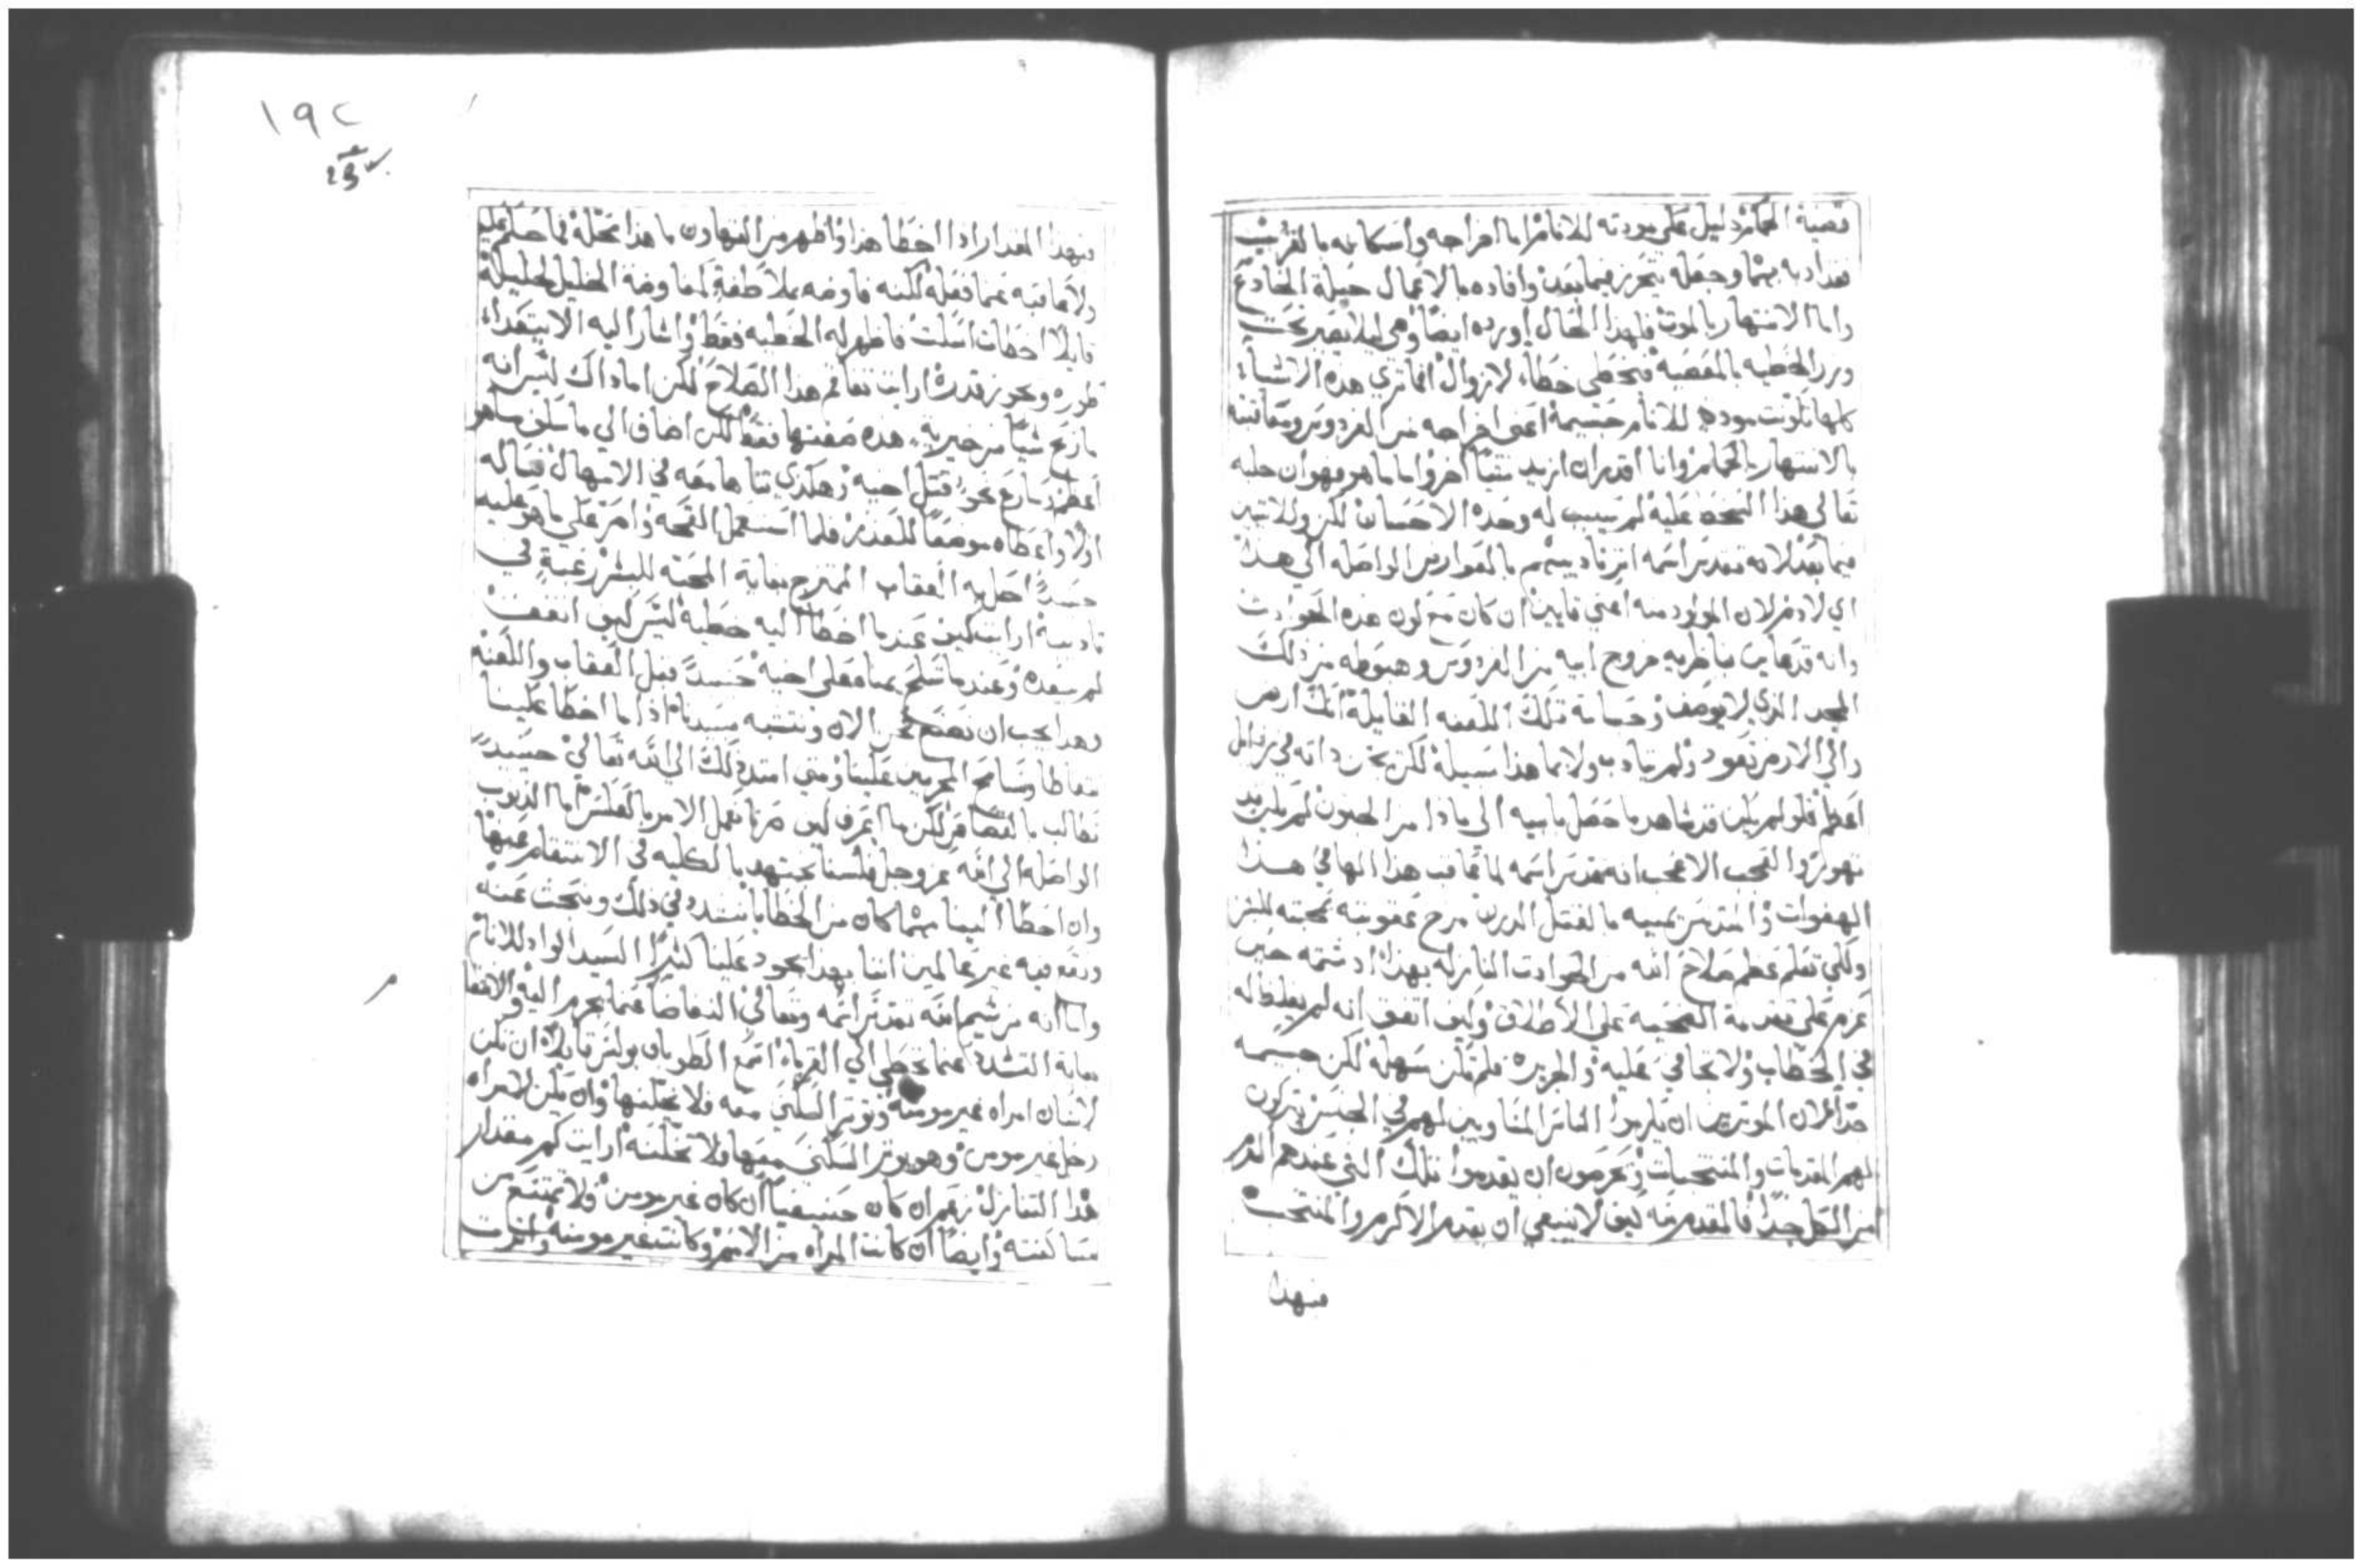 قضية الحمام دليل علي مودته للانام اما اخراجه واسكانه بالقرب
فقد ادبه بهما وجعله يتحرز فيما بعد وافاده بالاعمال حيلة الخادع
واما الانتهار بالموت فلهذا الحال اورده ايضًا وهي ليلا يصير تحت
وزر الخطيه بالمعصية فيخطي خطأ لا زوال افما تري هذه الاشياء
كلها تكونت موده للانام جسيمة اعني اخراجه من الفردوس ومعاتبته
بالانتهار بالحمام وانا اقدر ان ازيد شيًا اخر واما ما هو فهو ان حلبه
تعالي هذا السخط عليه لم يسبب له وحده الاحسان لكن وللاتين
فيما بعد لانه تقدس اسمه اثر تاديبهم بالعوارض الواصله الي هذا
اي لادم لان المولود منه اعني قايين ان كان مع كون هذه الحوادث
وانه قد عاين بناظريه خروج ابيه من الفردوس وهبوطه من ذلك
المجد الذي لا يوصف وحسامة تلك اللعنه القايلة انك ارض
والي الارض تعود ولم يتادب ولا بما هذا سبيلة لكن تخن ذاته في رذايل
اعظم فلو لم يكن قد شاهد ما حصل بابيه الي ماذا من الجنون لم يكن يد
تهور والعجب الاعجب انه تقدس اسمه لما عاقب هذا الهافي هذا
الهفوات والمتدنس يمينه بالقتل الدرن مزج عقوبته بمحبته للبشر
ولكي تعلم عظم صلاح الله من الحوادث النازله بهذا اد شتمه حين
عزم علي تقدمة الضحية علي الاطلاق وكيف اتفق انه لم يغلظ له
في الخطاب ولا تجافي عليه والجريره فلم تكن سهلة لكن جسيمه
جدًا لان الموترين ان يكرموا الناس المساويين لهم في الجنس يتركون
لهم المقدمات والمنتخبات ويحرصون ان يقدموا تلك التي عندهم اكرم
من الكل جدًا فالمقدم مه كيف لا ينبغي ان يقدم الاكرم والمنتخب
فبهذا
١٩٢
فبهذا المقدار اذا اخطا هذا واظهر من التهاون ما هذا محلة فما حكم عليه
ولا عاقبه عما فعله لكنه فاوضه بملاطفة لمفاوضة الخليل لخليلة
قايلاً اخطات اسكت فاظهر له الخطيه فقط واشار اليه الا يتعدا
طوره وتجوز قدره ارايت تفاقم هذا الصلاح لكن اما ذاك ليس انه
ما ربح شيًا من خيرية هذه صفتها فقط لكن اضاف الي ما سلف ما هو
اعظم وسارع نحو قتل اخيه وهكذي تناها معه في الامهال فساله
اولاً واعطاه موضعًا للعذر فلما استعمل القحه واصر علي ما هو عليه
حسدًا احل به العقاب الممتزج بغاية المحبة للبشر رغبة في
تاديبه ارايت كيف عندما اخطأ اليه خطية ليس كيف اتفقت
لم يبعده وعندما سلح يمناه علي اخيه حسدًا قبل العقاب واللعنه
وهذا يجب ان نصنع نحن الان ونتشبه بسيدنا اذا ما اخطا علينا
نتغاضا ونسامح المجرمين علينا ومتي امتد ذلك الي الله تعالي حينيدٍ
نطالب بالقصاص لكن ما اعرف كيف صرنا نعمل الامر بالعكس اما الذنوب
الواصله الي الله عز وجل فلسنا نجتهد بالكليه في الانتقام عنها
وان اخطا الينا بهما كان من الخطايا نشدد في ذلك ونبحث عنه
ونقع فيه غير عالمين اننا بهذا نجود علينا كثيرًا السيد الواد للانام
واما انه من شيم الله تقدس اسمه وتعالي التغاضا عما نجرم اليه والانتقام
بغاية التشدد عما نخطي الي القرباء اسمع الطوباني بولس قايلاً ان تكن
لانسان امراه غير مومنة وتوثر السكني معه فلا يخلّيها وان يكن لامراه
رجل غير مومن وهو يوثر السكني معها فلا تخلّيه ارايت كم مقدار
هذا التنازل نعم ان كان حنيفيًا ان كان غير مومن ولا يمتنع من
مساكنته وايضًا ان كانت المراه من الامم وكانت غير مومنة واثرت